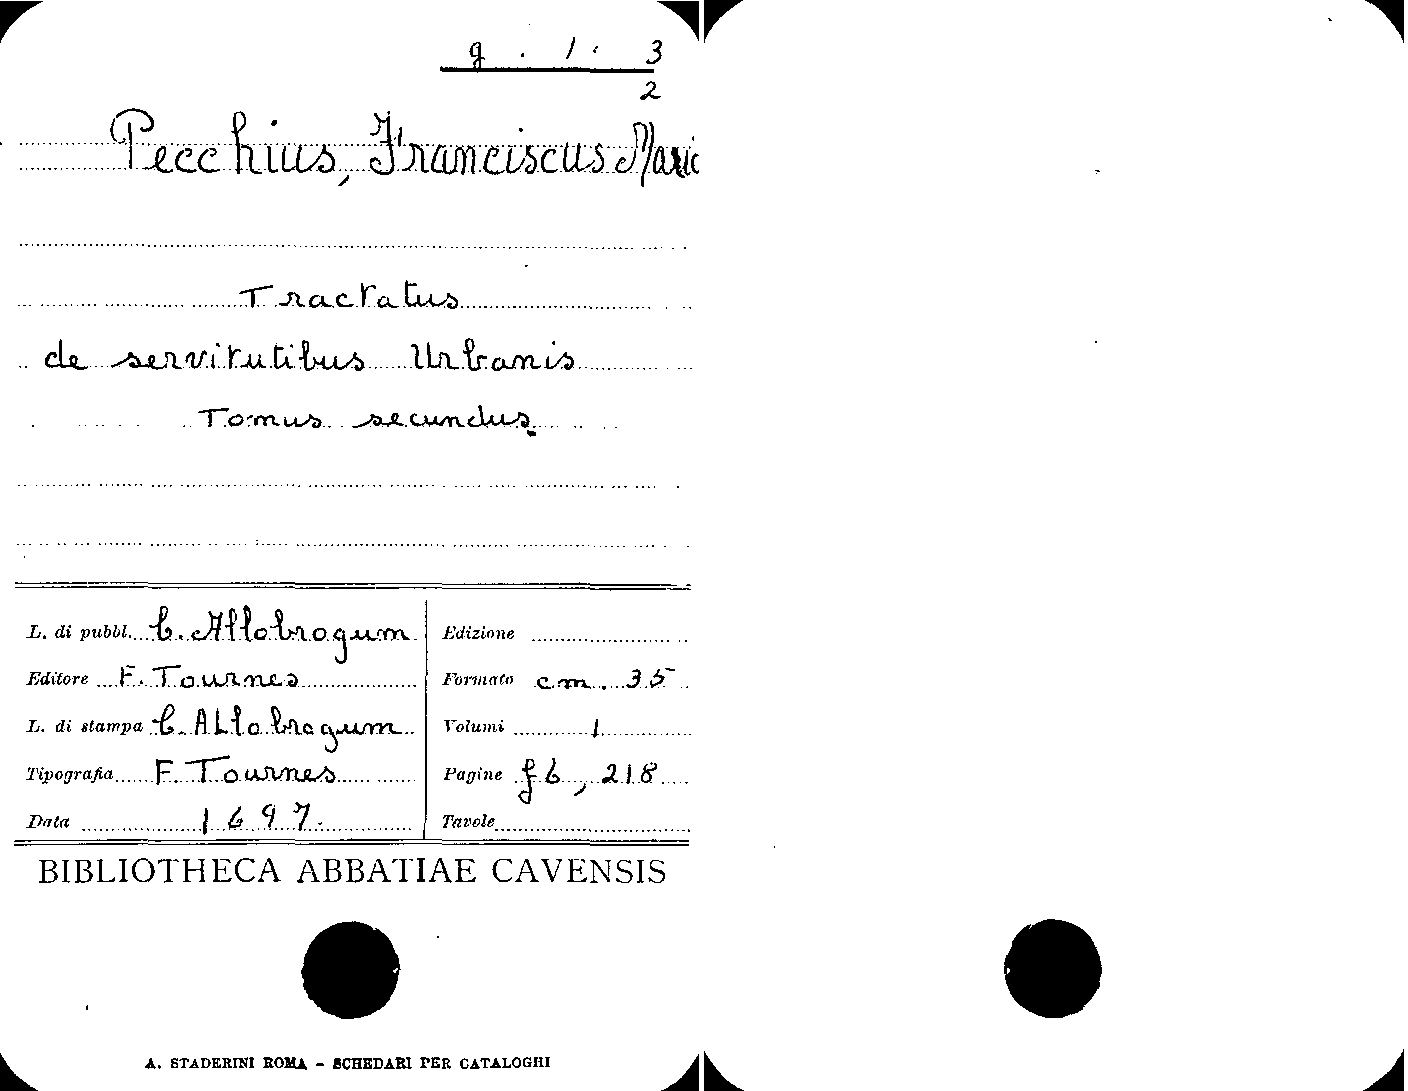 g . 1 . 3
2
Pecchius, Franciscus Maria
Tractatus
de servitutibus Urbanis
Tomus secundus.
L. di pubbl. C. Allobrogum
Editore F. Tournes
L. di stampa C. Allobrogum
Tipografia F. Tournes
Data 1697.
Edizione
Formato cm. 35
Volumi 1
Pagine f6, 218
Tavole
BIBLIOTHECA ABBATIAE CAVENSIS
A. STADERINI ROMA - SCHEDARI PER CATALOGHI